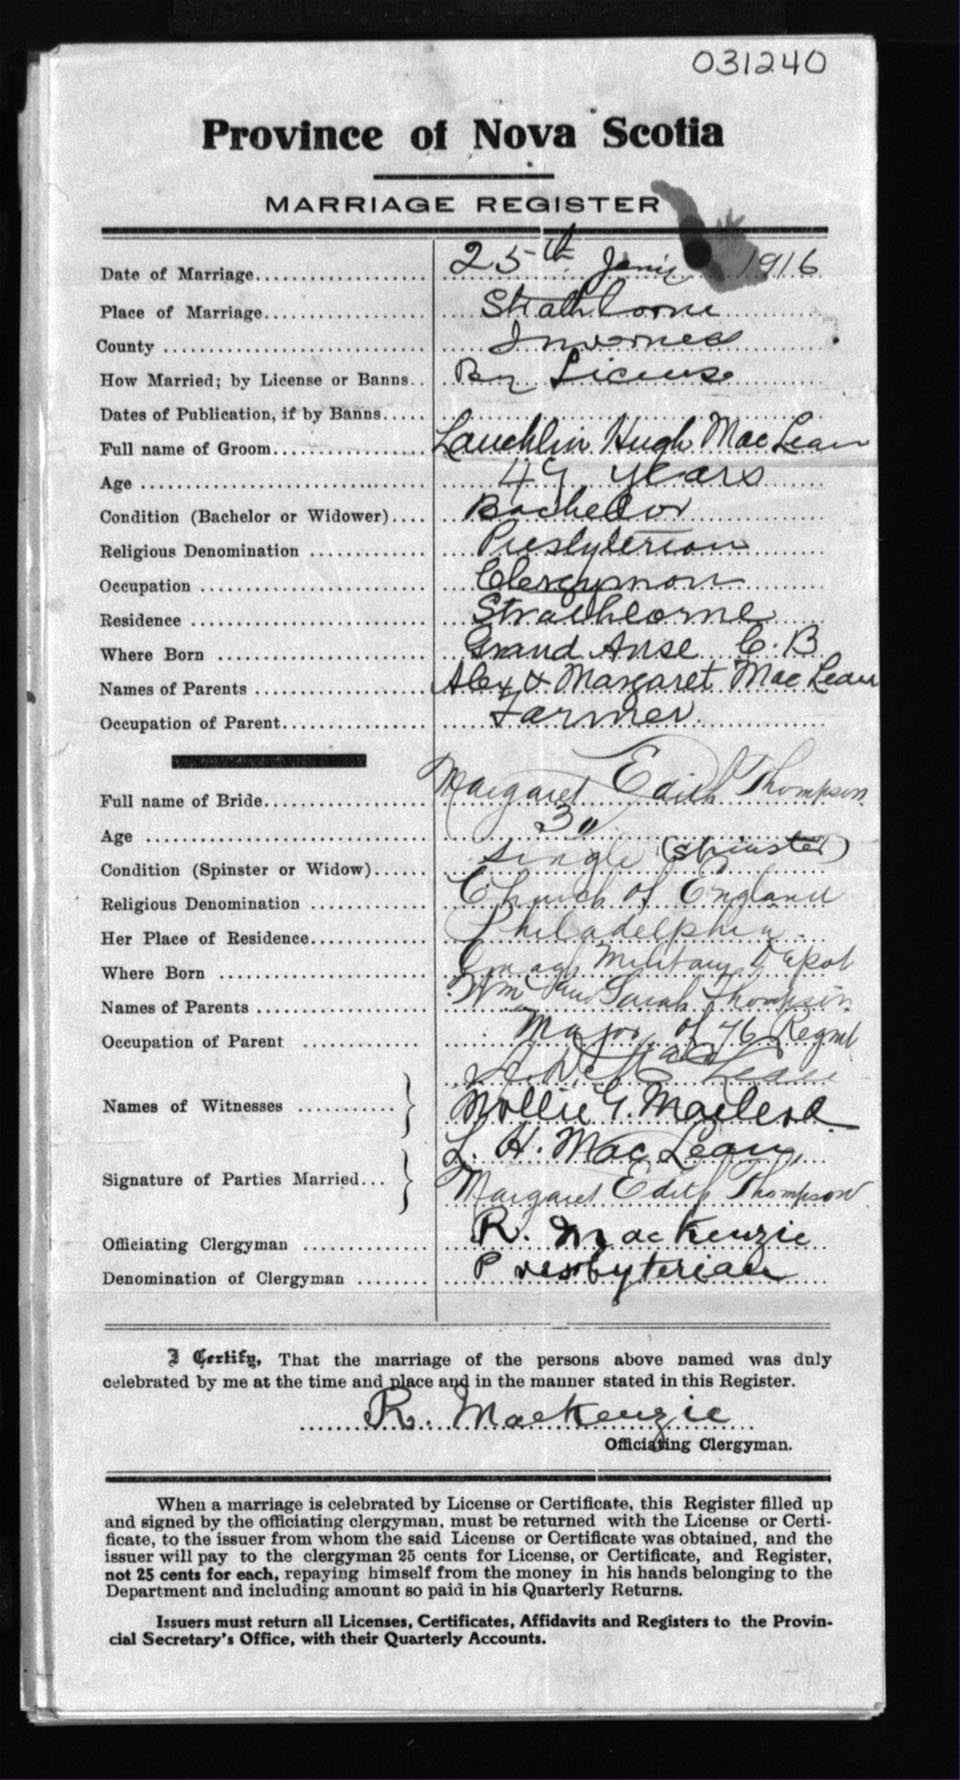 031240
Province of Nova Scotia
MARRIAGE REGISTER
Date of Marriage 25th Jany 1916
Place of Marriage Strathlorne
County Inverness
How Married; by License or Banns By License
Dates of Publication, if by Banns
Full name of Groom Lauchlin Hugh MacLean
Age 49 years
Condition (Bachelor or Widower) Bachelor
Religious Denomination Presbyterian
Occupation Clergyman
Residence Strathlorne
Where Born Grand Anse C. B
Names of Parents Alex & Margaret MacLean
Occupation of Parent Farmer
Full name of Bride Margaret Edith Thompson
Age
Condition (Spinster or Widow) Single (Spinster)
Religious Denomination Church of England
Her Place of Residence Philadelphia
Where Born Military Depot
Names of Parents Wm and Sarah Thompson
Occupation of Parent Major of 76 Regmt
Names of Witnesses
Mollie G. Macleod
L. H. MacLean
Signature of Parties Married
Margaret Edith Thompson
Officiating Clergyman R. MacKenzie
Denomination of Clergyman Presbyterian
I Certify, That the marriage of the persons above named was duly
celebrated by me at the time and place and in the manner stated in this Register.
R. MacKenzie
Officiating Clergyman.
When a marriage is celebrated by License or Certificate, this Register filled up
and signed by the officiating clergyman, must be returned with the License or Certi-
ficate, to the issuer from whom the said License or Certificate was obtained, and the
issuer will pay to the clergyman 25 cents for License, or Certificate, and Register,
not 25 cents for each, repaying himself from the money in his hands belonging to the
Department and including amount so paid in his Quarterly Returns.
Issuers must return all Licenses, Certificates, Affidavits and Registers to the Provin-
cial Secretary's Office, with their Quarterly Accounts.